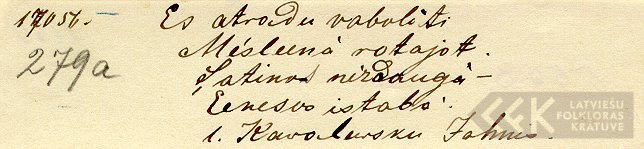 17056.- Es atradu vaboliti
279a Mēsleenā rotajot.
Satinos nēzdaugā-
Eenesos istabā.
1. Kavalewsku Jahnis.
LATVIEŠU
FOLKLORAS
KRĀTUVE